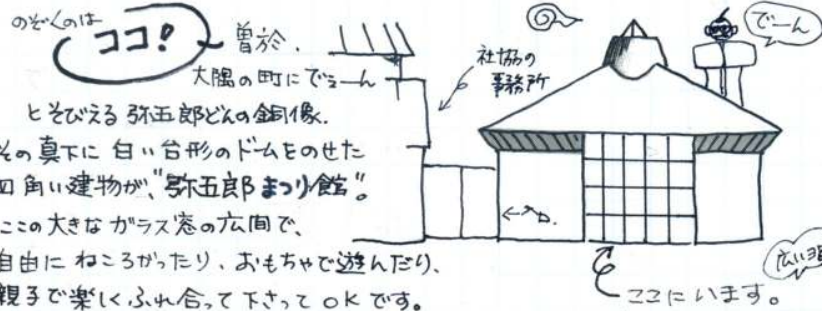 のぞくのは
ココ!
曽於.
大隅の町にでぇーん
とそびえる 弥五郎どんの銅像.
その真下に 白い台形のドームをのせた
四角い建物が、"弥五郎まつり館"。
ここの大きなガラス窓の広間で、
自由に ねころがったり、おもちゃで遊んだり、
親子で楽しくふれ合って下さって OK です。
社協の
事務所
でーん
ここにいます。
広い